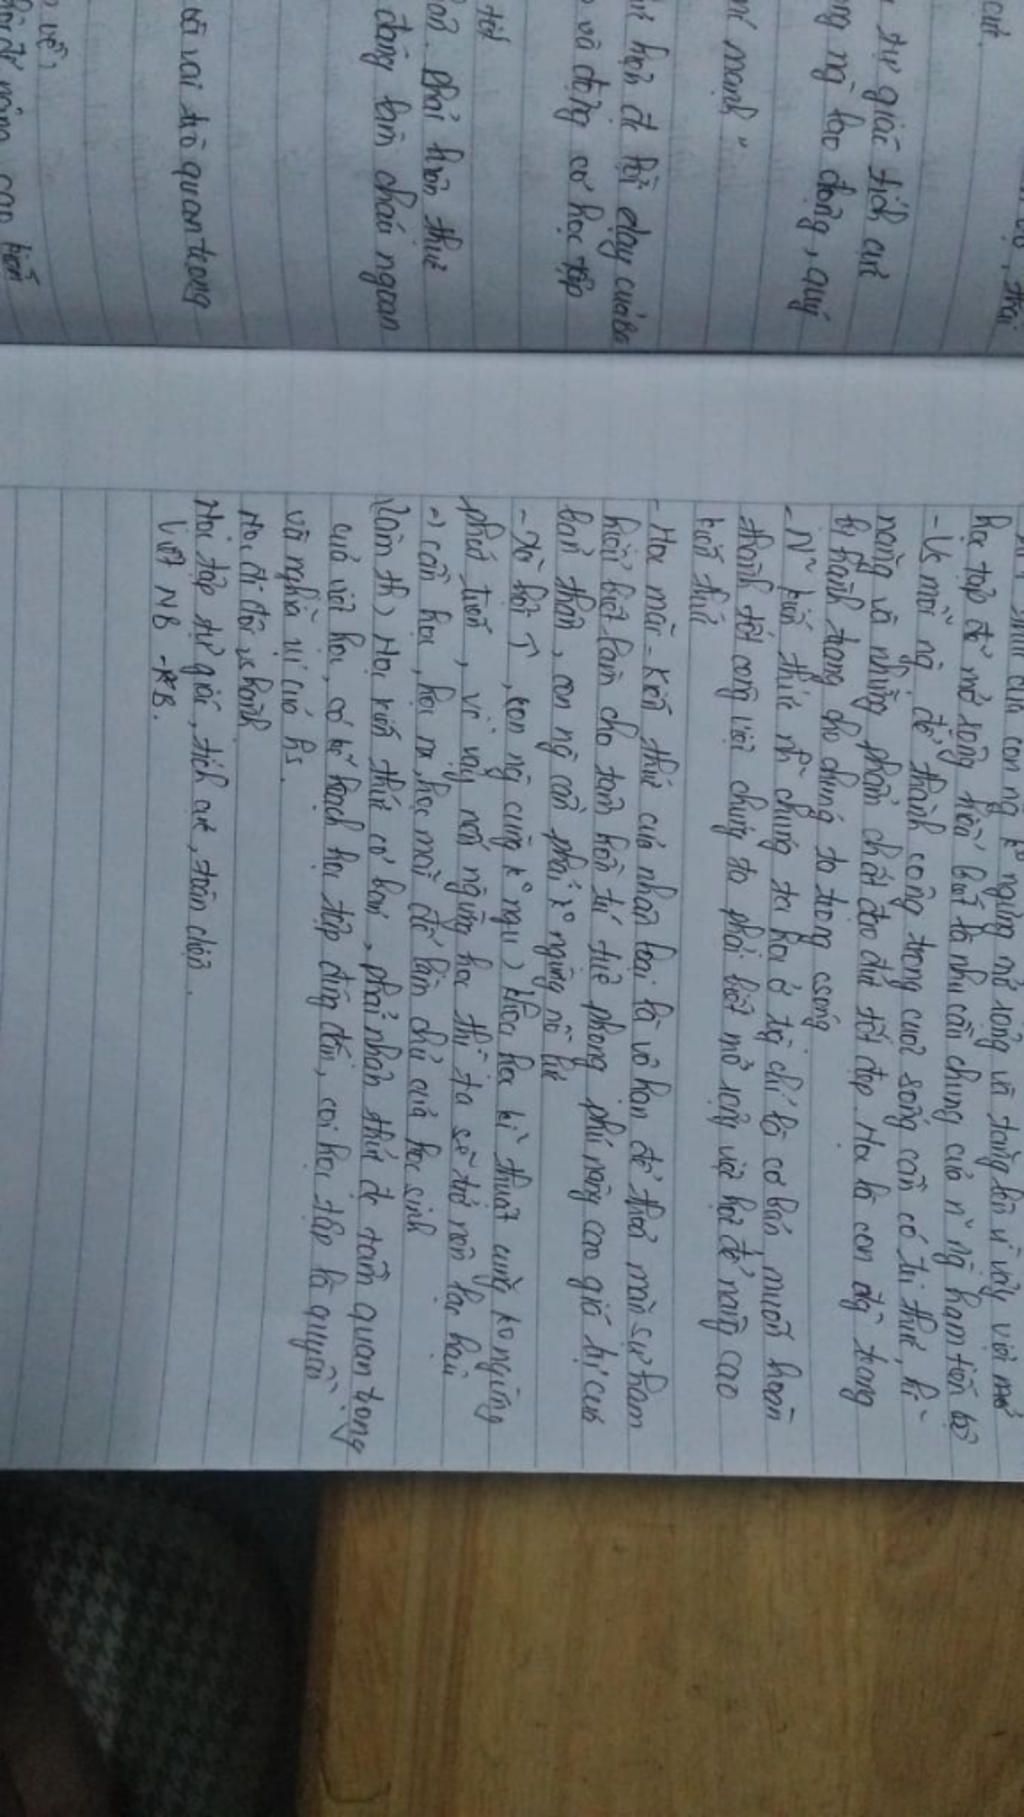 cực.
tự giác tích cực
ng ng lao động, quý
mạnh"
hạn đi lời dạy của Ba
và động cơ học tập
tốt
phải luôn thức
đáng làm cháu ngoan
vai trò quan trọng
về,
học tập để mở rộng hiểu biết là nhu cầu chung của n~ ng ham tiến bộ
- Vs mỗi ng để thành công trong cuộc sống cần có tri thức, kĩ
năng và những phẩm chất đạo đức tốt đẹp. Học là con đg trang
bị hành trang cho chúng ta trong csống
- N~ kiến thức mà chúng ta học ở trg chỉ là cơ bản muốn hoàn
thành tốt công việc chúng ta phải biết mở rộng việc học để nâng cao
kiến thức
- Học mãi - Kiến thức của nhân loại là vô hạn để thoả mãn sự ham
hiểu biết làm cho tâm hồn trí tuệ phong phú nâng cao giá trị của
bản thân, con ng cần phải k° ngừng nỗ lực
- Xã hội ↑, con ng cũng k° ngu) khoa học kĩ thuật cũng ko ngừng
phát triển, vì vậy nếu ngừng học thì ta sẽ trở nên lạc hậu
=) cần học, học nx, học mãi để làm chủ của học sinh
Làm th) Học kiến thức cơ bản, phải nhận thức đc tầm quan trọng
của việc học, có kế hoạch học tập đúng đắn, coi học tập là quyền
và nghĩa vụ của hs.
Học đi đôi vs hành
Học tập tự giác, tích cực, toàn diện.
Viết NB - KB.